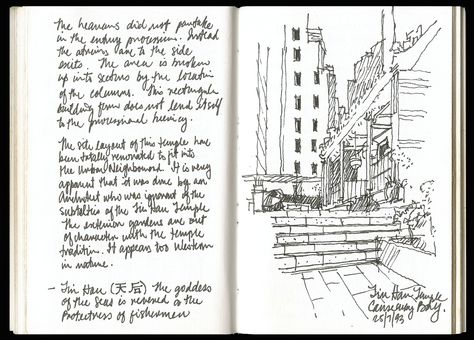 The heavens did not partake
in the entry procession. Instead
the atriums were to the side
exits. The area is broken
up into sections by the location
of the columns. This rectangular
building form does not lend itself
to the processional hierarchy.
The site layout of this temple has
been totally renovated to fit into
the Urban Neighborhood. It is very
apparent that it was done by an
Architect who was ignorant of the
subtalties of the Tin Hau Temple
The exterior gardens are out
of character with the temple
tradition. It appears too Western
in nature.
— Tin Hau (天后) The goddess
of the Seas is revered as the
Protectress of fishermen
Tin Hau Temple
Causeway Bay.
25/7/93